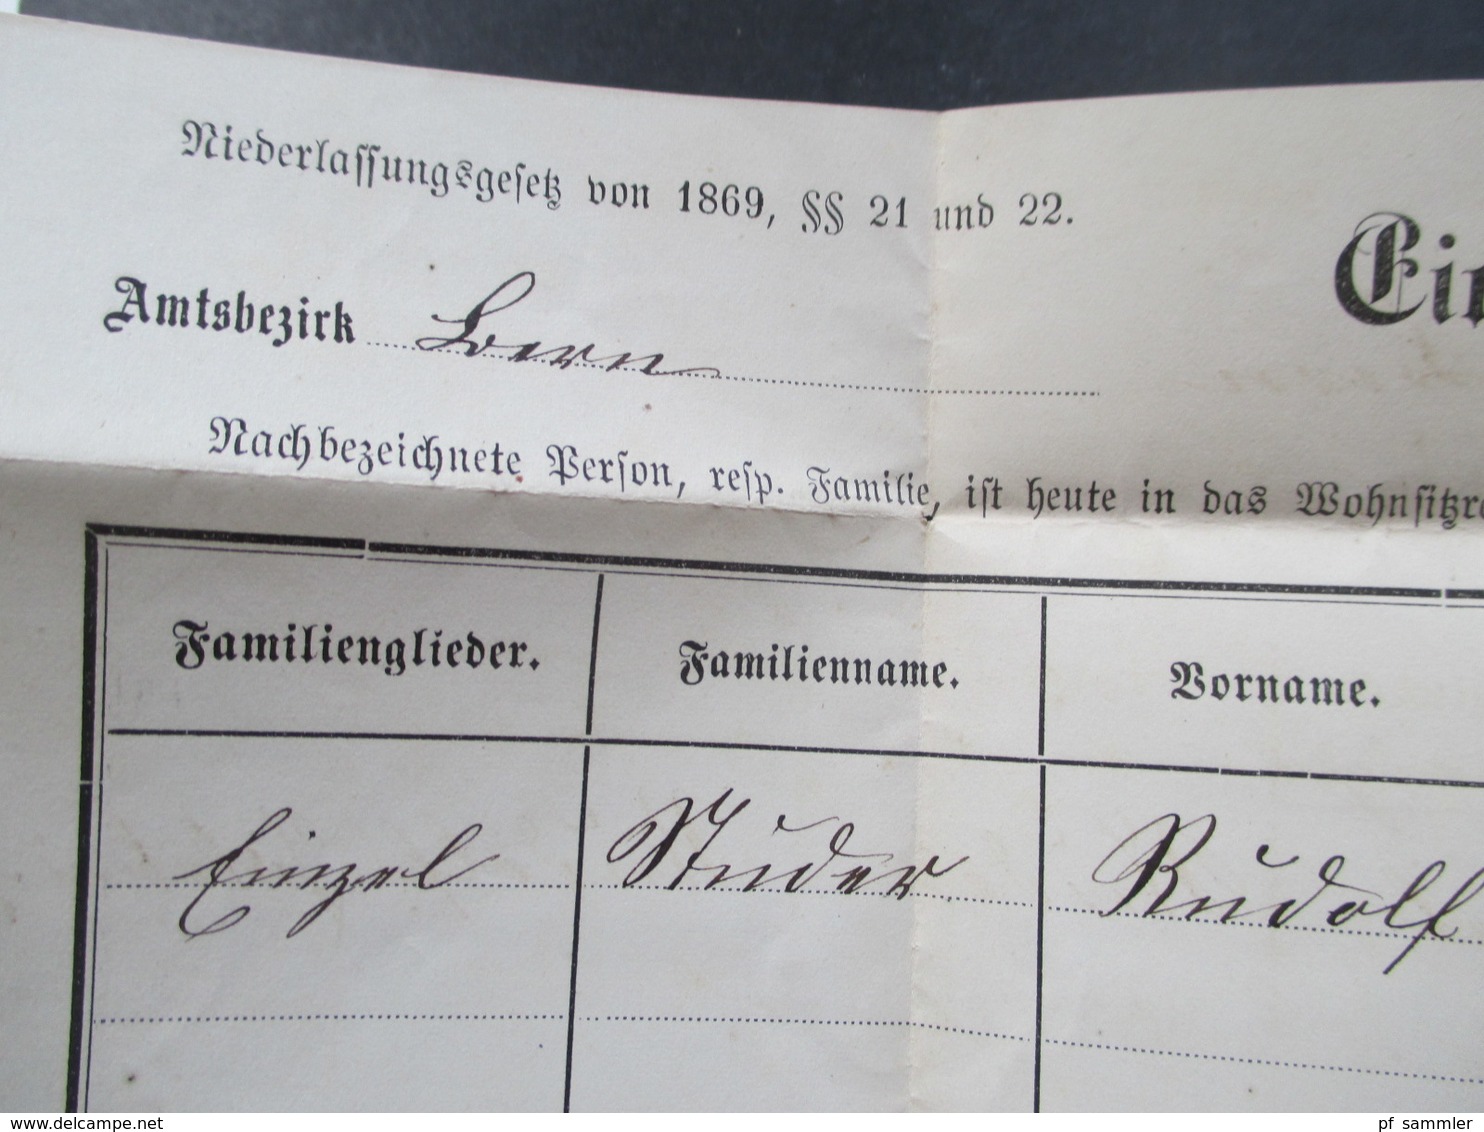 Niederlassungsgesetz von 1869, §§ 21 und 22.
Amtsbezirk Bern
Nachbezeichnete Person, resp. Familie, ist heute in das
Familienglieder. Familienname. Vorname.
Einzel Studer Rudolf
pf_sammler - www.delcampe.net